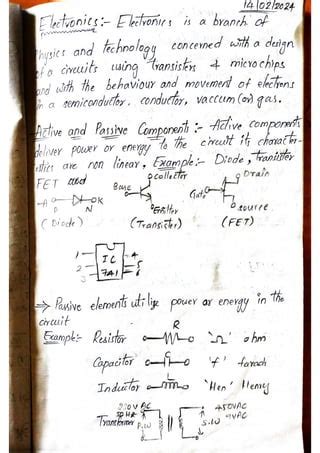 14/02/2024
Electronics:- Electronics is a branch of
Physics and technology concerned with a design
of a circuits using transistors & microchips
and with the behaviour and movement of electrons
in a semiconductor. conductor, vaccum (or) gas.
Active and Passive Components:- Active components
deliver power or energy to the circuit its character-
istics are non linear, Example:- Diode, Transistor
FET
Collector
Drain
Base
Gate
A
K
P N
Emitter
source
(Diode)
(Transistor)
(FET)
IC
741
1
2
3
4
5
6
⇒ Passive elements utilize power or energy in the
circuit
R
Example:- Resistor 'Ω' ohm
C
Capacitor 'f' farach
L
Inductor 'Hen' Henry
220V AC
450VAC
Transformer P.W
S.W